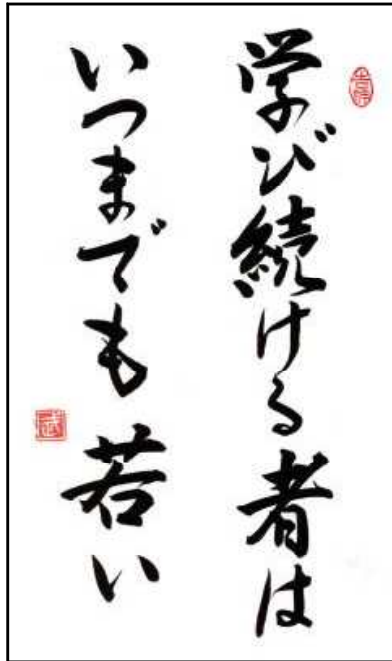 学び続ける者は
いつまでも若い